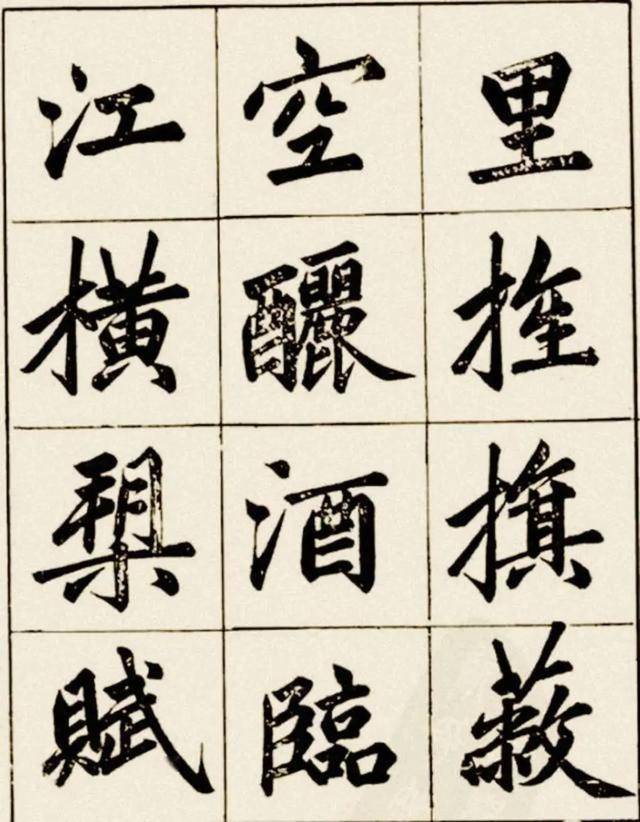 里旌旗蔽
空釃酒臨
江横槊賦